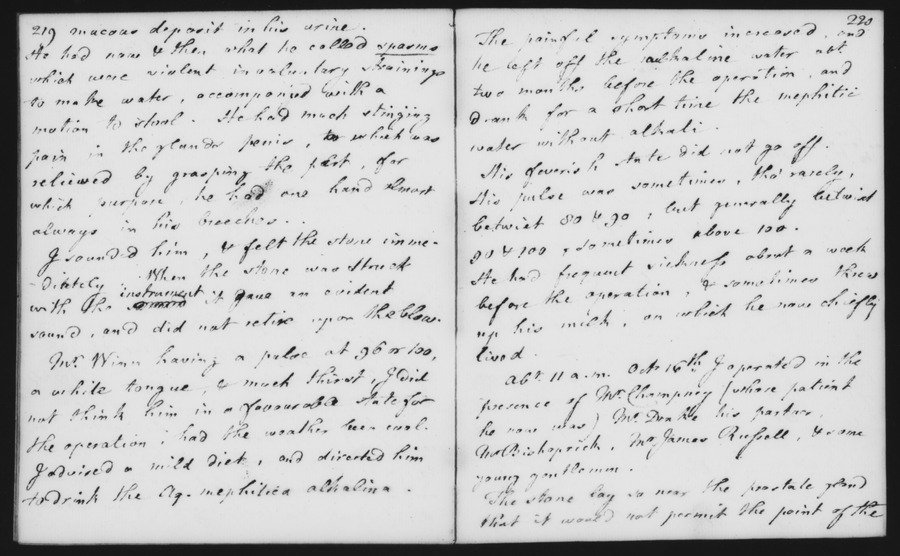 219 mucous deposit in his urine.
He had now & then what he called spasms
which were violent involuntary strainings
to make water, accompanied with a
motion to stool. He had much stinging
pain in the glands penis, which was
relieved by grasping the part, for
which purpose, he had one hand almost
always in his breeches.
I sounded him, & felt the stone imme-
-diately. When the stone was struck
with the instrument it gave an evident
sound, and did not retire upon the blow.
Mr. Winn having a pulse at 96 or 100,
a white tongue, & much thirst, I did
not think him in a favourable state for
the operation; had the weather been cool.
I advised a mild diet, and directed him
to drink the Aq. mephitica alkalina.
220
The painful symptoms increased, and
he left off the alkaline water abt
two months before the operation, and
drank for a short time the mephitic
water without alkali.
His feverish state did not go off.
His pulse was sometimes, tho' rarely,
betwixt 80 & 90; but generally betwixt
90 & 100, sometimes above 100.
He had frequent sickness about a week
before the operation, & sometimes threw
up his milk, on which he now chiefly
lived.
Abt. 11 a.m. Octr 14th I operated in the
presence of Mr. Champney (whose patient
he now was) Mr. Drake his partner,
Mr. Bishoprick, Mr. James Russell, & some
young gentlemen.
The stone lay so near the prostate gland
that it would not permit the point of the